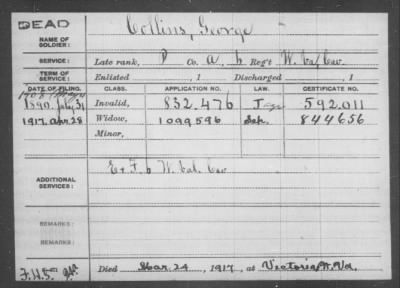 DEAD
NAME OF SOLDIER: Collins, George
SERVICE: Late rank, P Co. A, 6 Reg't W. Va. Cav.
TERM OF SERVICE: Enlisted , 1 Discharged , 1
DATE OF FILING. CLASS. APPLICATION NO. LAW. CERTIFICATE NO.
1890 July 31 Invalid, 832,476 592.011
1917 Apr 28 Widow, 1099596 Sep. 844656
Minor,
ADDITIONAL SERVICES: E & F. 6 W. Va. Cav
REMARKS:
REMARKS:
Died Mar. 24, 1917, at Victoria, W. Va.